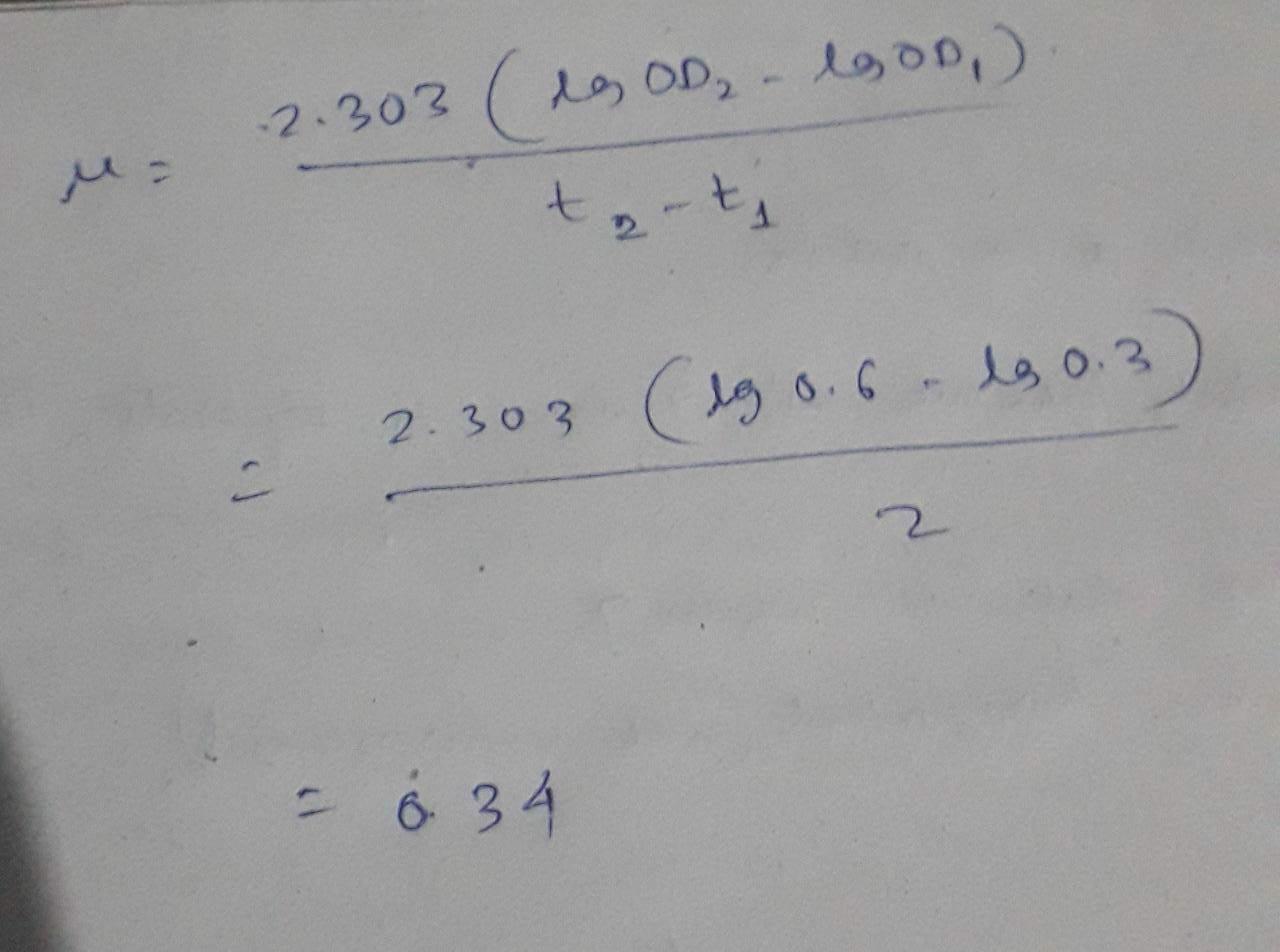 μ = 2.303 ( lg OD₂ - lg OD₁ )
t₂ - t₁
= 2.303 ( lg 0.6 - lg 0.3 )
2
= 0.34